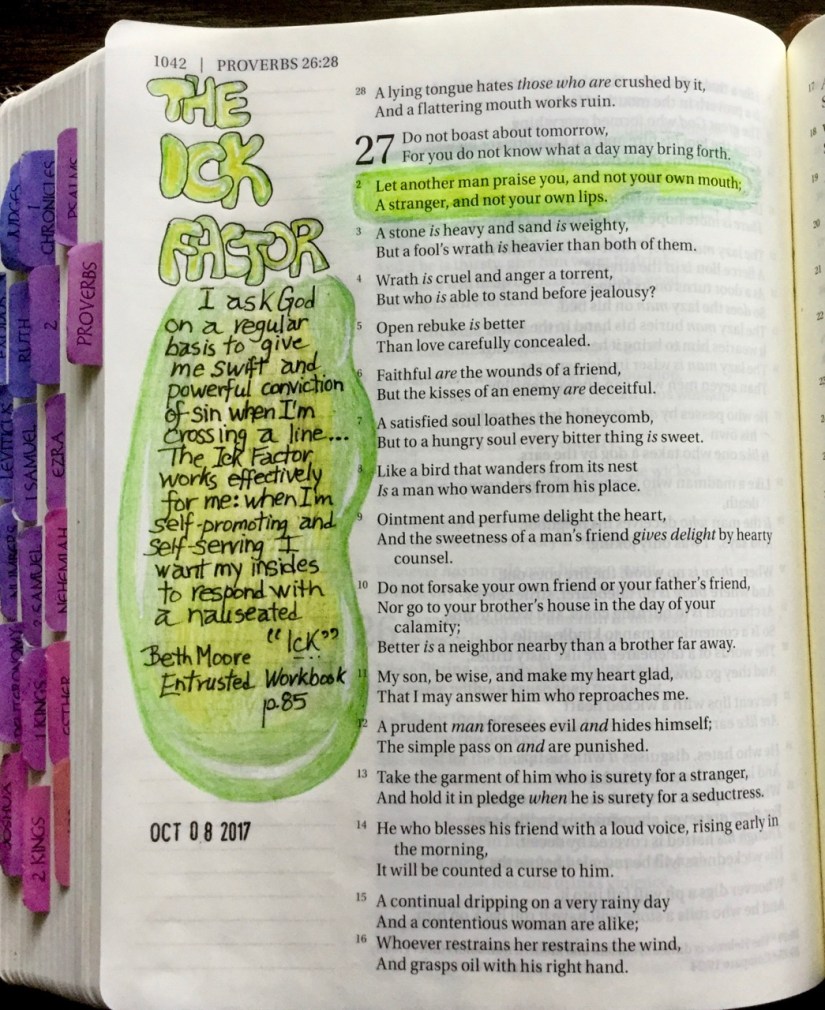 1042 | PROVERBS 26:28
THE
ICK
FACTOR
I ask God
on a regular
basis to give
me swift and
powerful conviction
of sin when I'm
crossing a line...
The Ick Factor
works effectively
for me: when I'm
self-promoting and
self-serving I
want my insides
to respond with
a nauseated
"Ick"
Beth Moore
Entrusted Workbook
p.85
OCT 08 2017
28 A lying tongue hates those who are crushed by it,
And a flattering mouth works ruin.
27 Do not boast about tomorrow,
For you do not know what a day may bring forth.
2 Let another man praise you, and not your own mouth;
A stranger, and not your own lips.
3 A stone is heavy and sand is weighty,
But a fool's wrath is heavier than both of them.
4 Wrath is cruel and anger a torrent,
But who is able to stand before jealousy?
5 Open rebuke is better
Than love carefully concealed.
6 Faithful are the wounds of a friend,
But the kisses of an enemy are deceitful.
7 A satisfied soul loathes the honeycomb,
But to a hungry soul every bitter thing is sweet.
8 Like a bird that wanders from its nest
Is a man who wanders from his place.
9 Ointment and perfume delight the heart,
And the sweetness of a man's friend gives delight by hearty
counsel.
10 Do not forsake your own friend or your father's friend,
Nor go to your brother's house in the day of your
calamity;
Better is a neighbor nearby than a brother far away.
11 My son, be wise, and make my heart glad,
That I may answer him who reproaches me.
12 A prudent man foresees evil and hides himself;
The simple pass on and are punished.
13 Take the garment of him who is surety for a stranger,
And hold it in pledge when he is surety for a seductress.
14 He who blesses his friend with a loud voice, rising early in
the morning,
It will be counted a curse to him.
15 A continual dripping on a very rainy day
And a contentious woman are alike;
16 Whoever restrains her restrains the wind,
And grasps oil with his right hand.
JUDGES
1 CHRONICLES
PSALMS
RUTH
2
PROVERBS
LEVITICUS
1 SAMUEL
EZRA
NUMBERS
2 SAMUEL
NEHEMIAH
DEUTERONOMY
1 KINGS
ESTHER
JOSHUA
2 KINGS
17
18
19
20
21
22